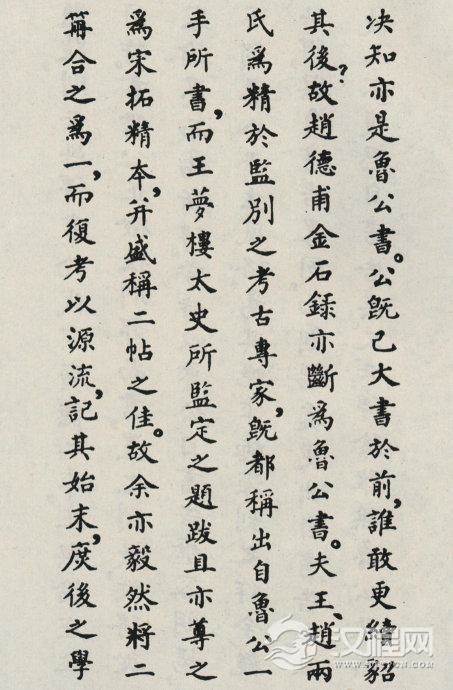 决知亦是魯公書。公既已大書於前，誰敢更續貂
其後？故趙德甫金石録亦斷爲魯公書。夫王、趙兩
氏爲精於監別之考古專家，既都稱出自魯公一
手所書，而王夢樓太史所監定之題跋且亦尊之
爲宋拓精本，并盛稱二帖之佳。故余亦毅然將二
冊合之爲一，而復考以源流，記其始末，庶後之學